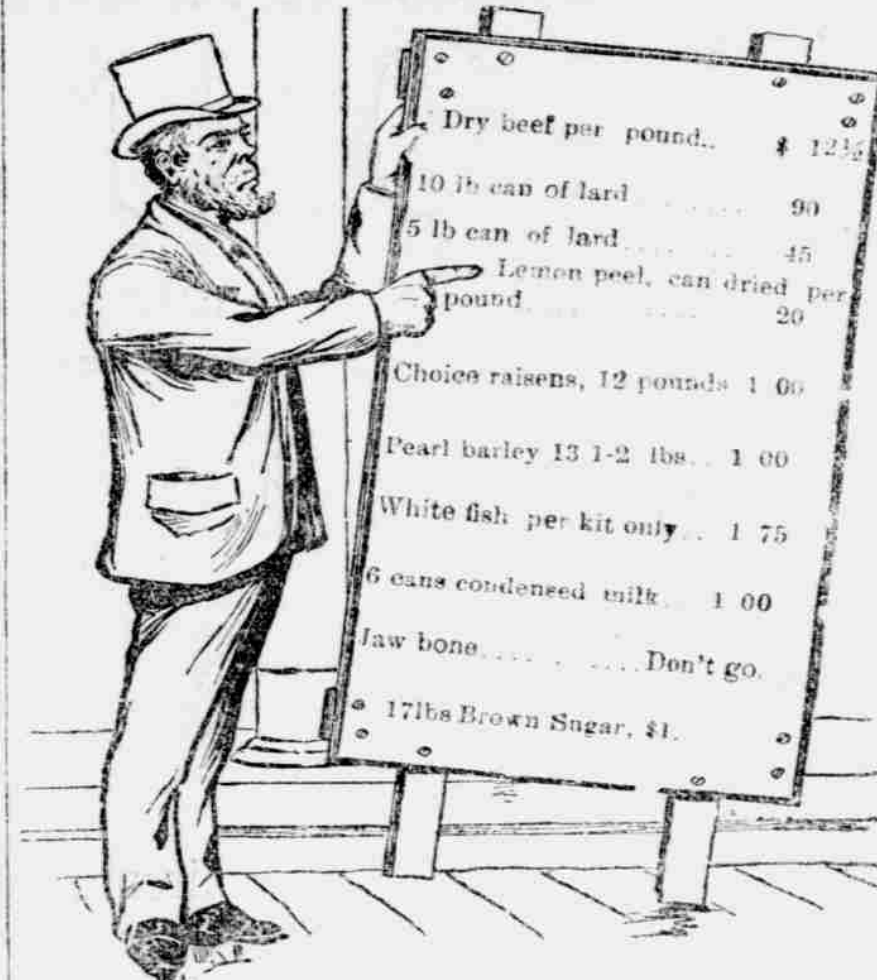 Dry beef per pound.. $ 12½
10 lb can of lard ........ 90
5 lb can of lard ........ 45
Lemon peel, can dried per
pound ........ 20
Choice raisens, 12 pounds 1 00
Pearl barley 13 1-2 lbs.. 1 00
White fish per kit only.. 1 75
6 cans condensed milk.. 1 00
Jaw bone........Don't go.
17lbs Brown Sugar, $1.